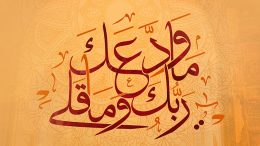 ما ودعك
ربك وما قلى